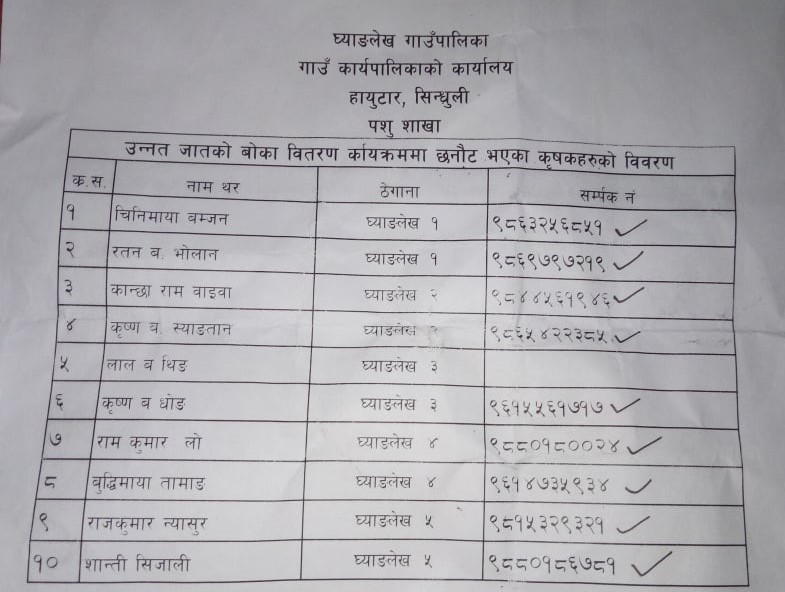 घ्याङलेख गाउँपालिका
गाउँ कार्यपालिकाको कार्यालय
हायुटार, सिन्धुली
पशु शाखा
उन्नत जातको बोका वितरण र्कायक्रममा छनौट भएका कृषकहरुको विवरण
क.स. नाम थर ठेगाना सर्म्पक नं
१ चिनिमाया बम्जन घ्याङलेख १ ९८६३२५६८५१
२ रतन ब. भोलान घ्याङलेख १ ९८६९७९७२१९
३ कान्छा राम वाइवा घ्याङलेख २ ९८४४५६१९४६
४ कृष्ण ब. स्याङतान घ्याङलेख ९८६५४२२३८५
५ लाल ब थिङ घ्याङलेख ३
६ कृष्ण ब घोङ घ्याङलेख ३ ९६१५५६१७१७
७ राम कुमार लो घ्याङलेख ४ ९८८०१८००२४
८ बुद्धिमाया तामाङ घ्याङलेख ४ ९६१४७३५९३४
९ राजकुमार न्यासुर घ्याङलेख ५ ९८१५३२९३२१
१० शान्ती सिजाली घ्याङलेख ५ ९८८०१८६७८१